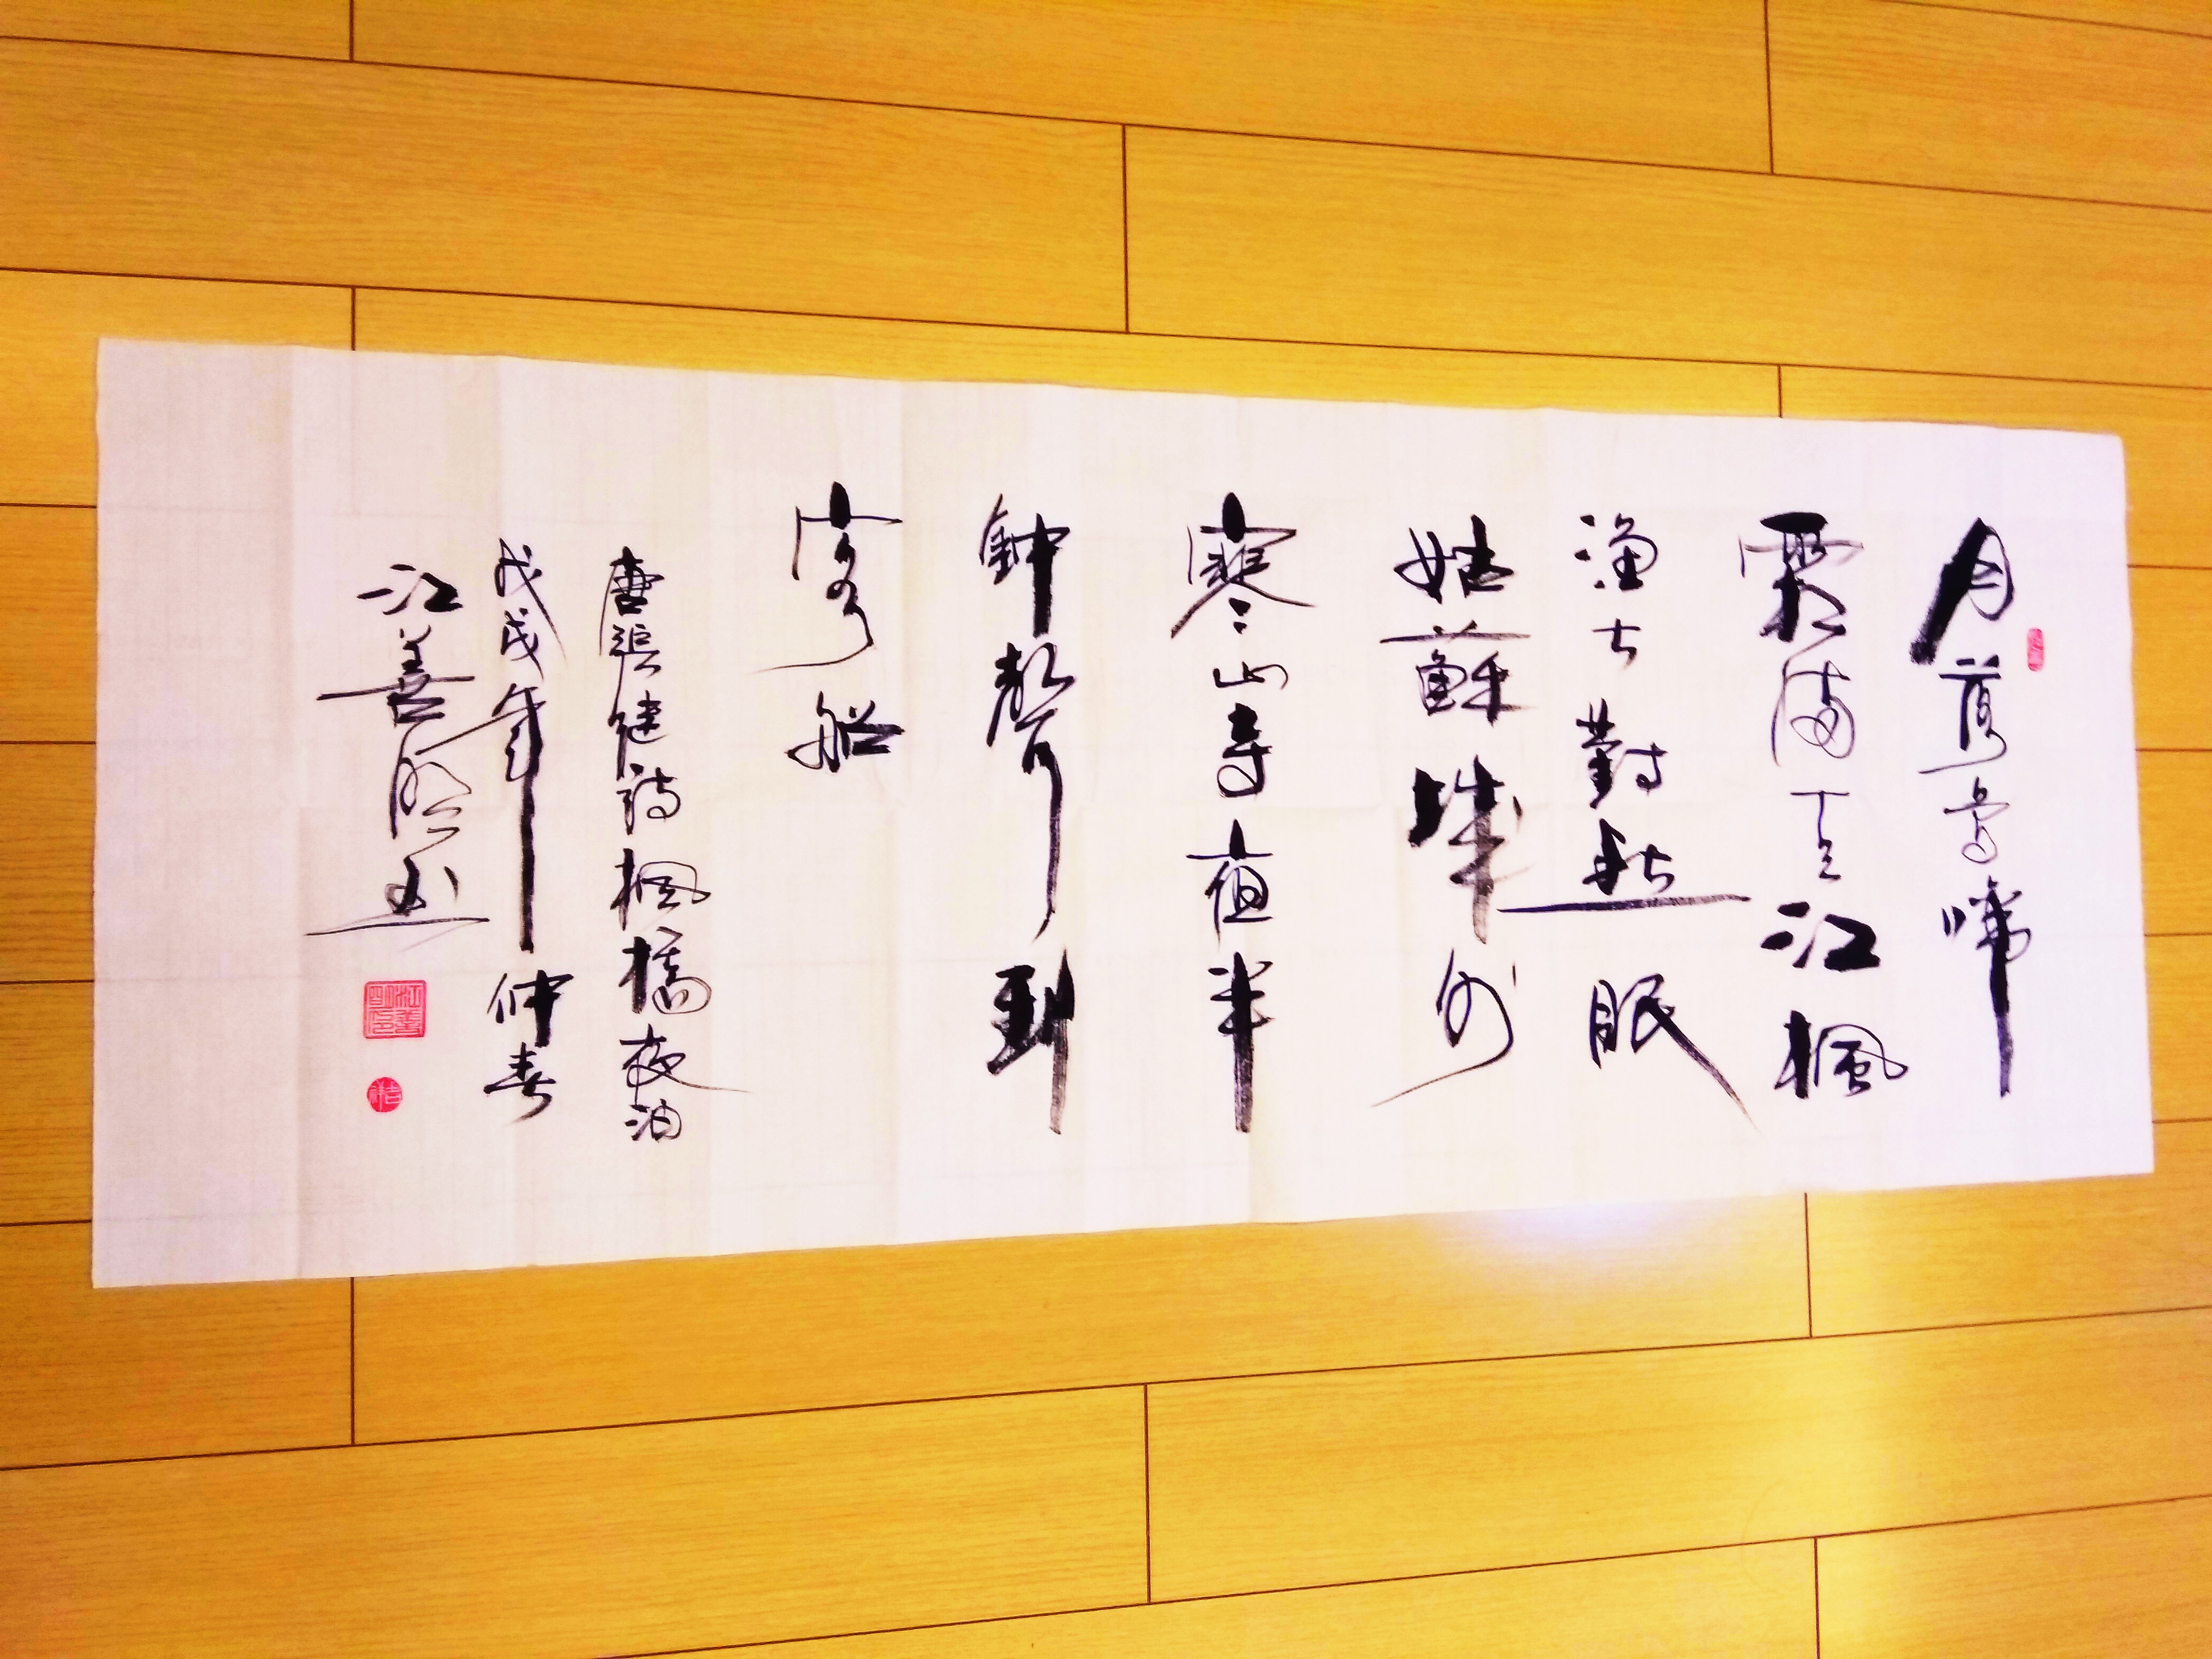 月落烏啼
霜滿天江楓
漁火對愁眠
姑蘇城外
寒山寺夜半
鈡聲到
客船
唐張継詩楓橋夜泊
戊戌年仲春
江善书